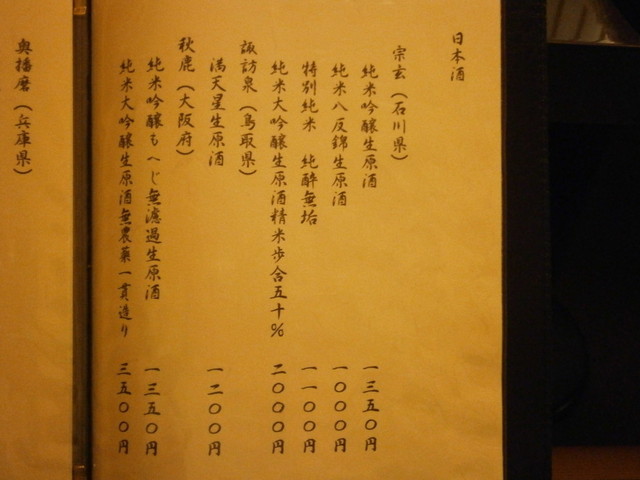 日本酒
宗玄（石川県）
純米吟醸生原酒 一三五〇円
純米八反錦生原酒 一〇〇〇円
特別純米 純酔無垢 一一〇〇円
純米大吟醸生原酒精米歩合五十% 二〇〇〇円
諏訪泉（鳥取県）
満天星生原酒 一二〇〇円
秋鹿（大阪府）
純米吟醸もへじ無濾過生原酒 一三五〇円
純米大吟醸生原酒無農薬一貫造り 三五〇〇円
奥播磨（兵庫県）